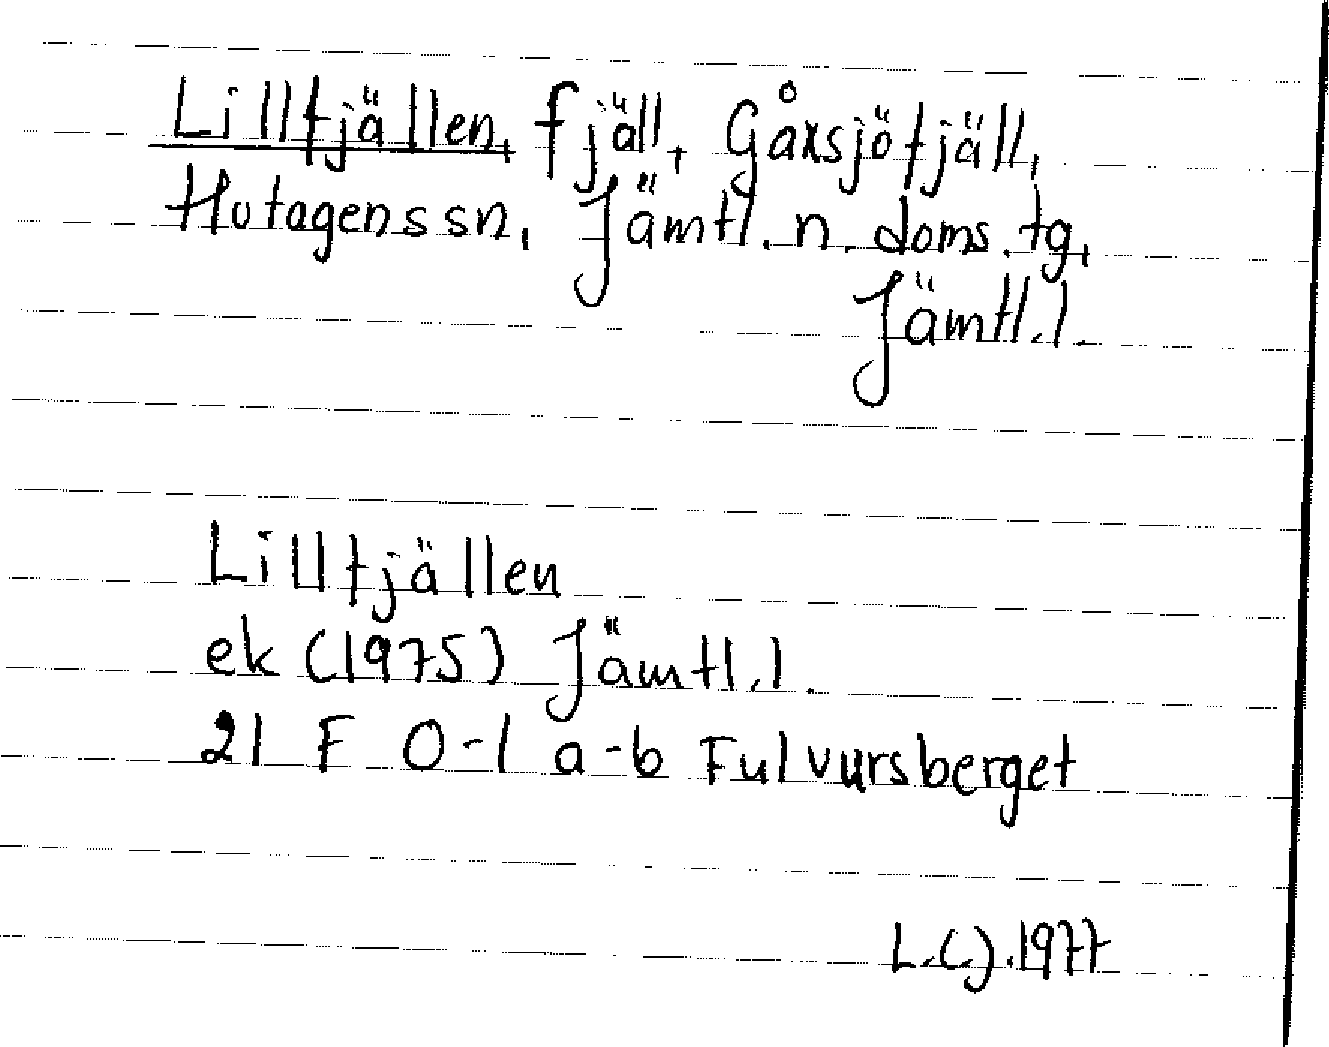 Lillfjällen, fjäll, Gåxsjöfjäll,
Hotagens sn, Jämtl. n. doms. tg,
Jämtl. l.
Lillfjällen
ek (1975) Jämtl. l.
21 F 0-1 a-b Fulvursberget
L.C.J. 1977